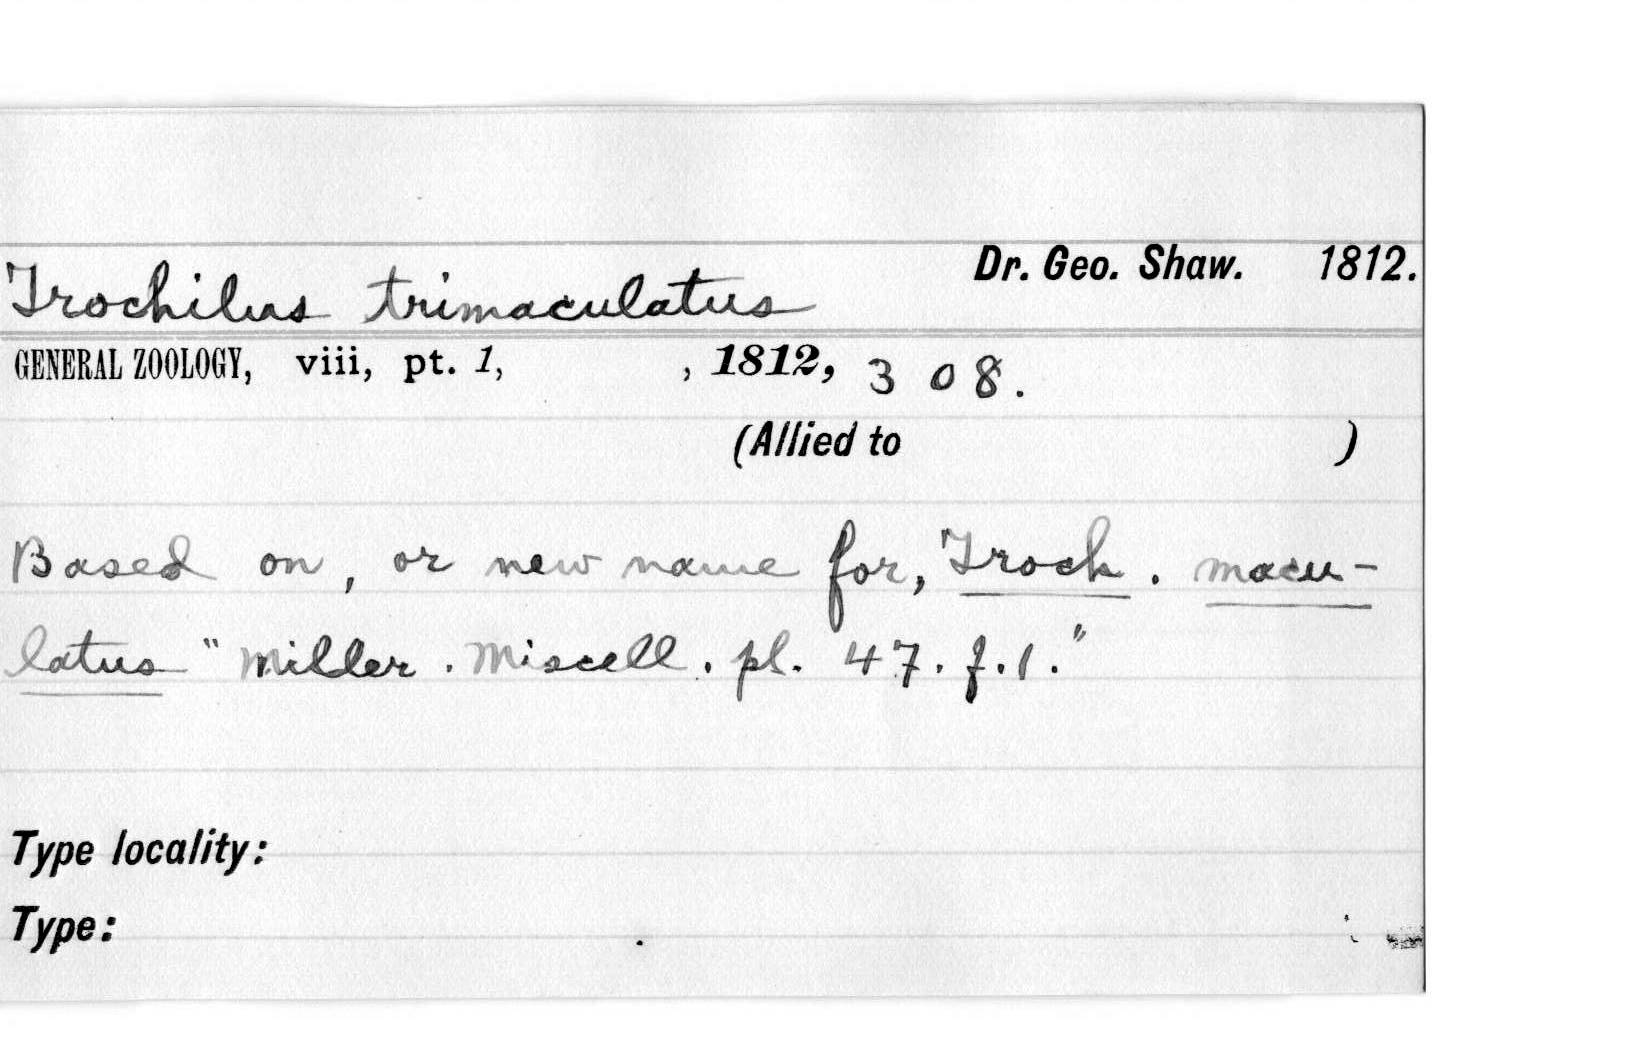 Dr. Geo. Shaw. 1812.
Trochilus trimaculatus
GENERAL ZOOLOGY, viii, pt. 1, , 1812, 308.
(Allied to )
Based on, or new name for, Troch. macu-
latus "Miller. Miscell. pl. 47. f. 1."
Type locality:
Type: